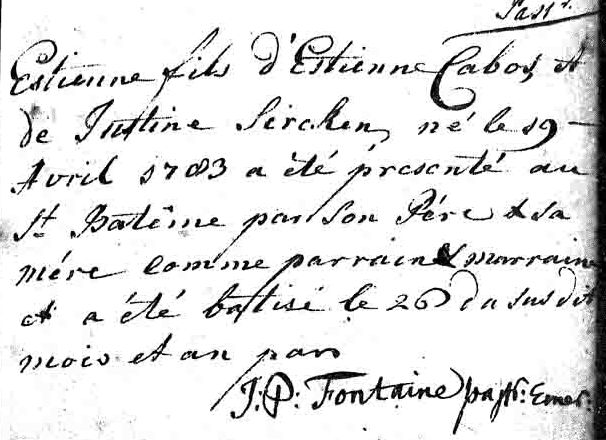 Past.
Estienne fils d'Estienne Cabos et
de Justine Sircken, né le 19
Avril 1783 a été presenté au
St. Batême par son Pére & sa
mére comme parrain & marraine
et a été batisé le 26 du susdit
mois et an par
J: P: Fontaine past: Emer: